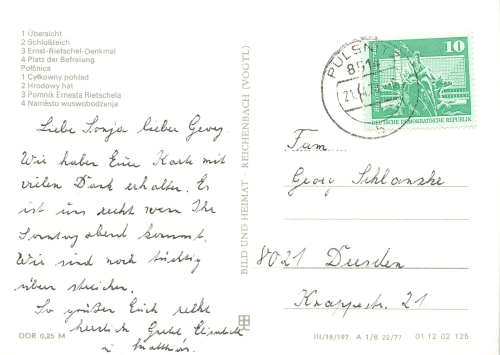 1 Übersicht
2 Schloßteich
3 Ernst-Rietschel-Denkmal
4 Platz der Befreiung
Połčnica
1 Cyłkowny pohlad
2 Hrodowy hat
3 Pomnik Ernesta Rietschela
4 Naměsto wuswobodźenja
Liebe Sonja lieber Georg.
Wir haben Eure Karte mit
vielen Dank erhalten. Es
ist uns recht wenn Ihr
Sonntag abend kommt.
Wir sind noch tüchtig
über streichen.
So grüßen Euch recht
herzlich Grete Elisabeth
u. Matthias.
DDR 0,25 M
BILD UND HEIMAT · REICHENBACH (VOGTL)
PULSNITZ
851
21.
b
10
DEUTSCHE DEMOKRATISCHE REPUBLIK
Fam.....
Georg Schlanzke
8021 Dresden
Knappestr. 21
III/18/197 A 1/B 22/77 01 12 02 125